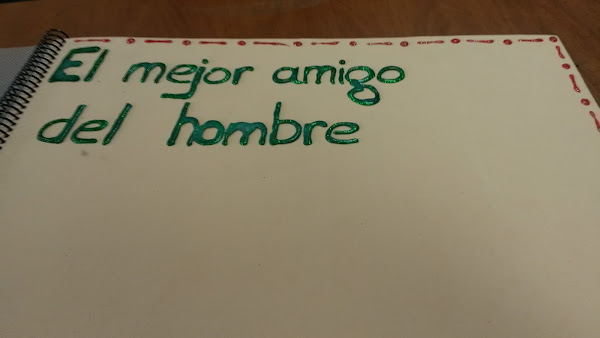 El mejor amigo
del hombre